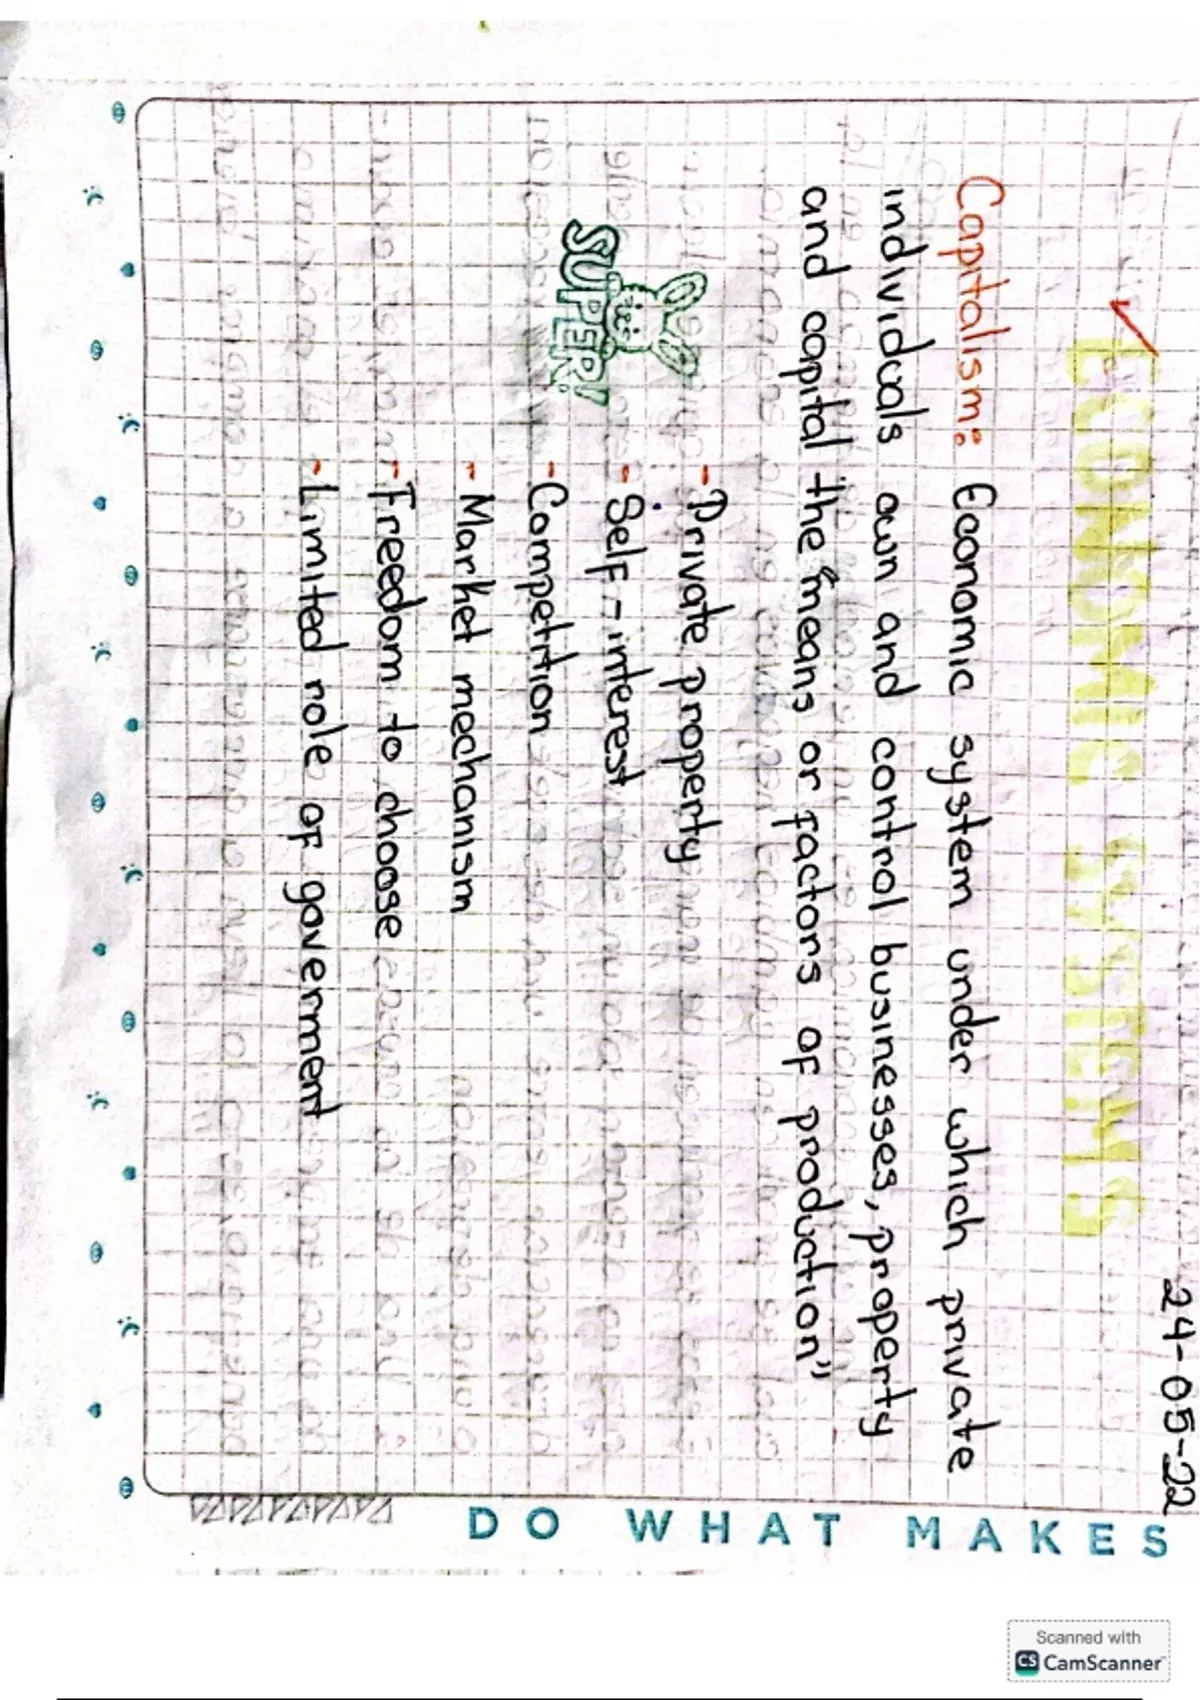 24-05-22
ECONOMIC SYSTEMS
Capitalism: Economic system under which private
individuals own and control businesses, property
and capital the "means or factors of production"
- Private property
- Self-interest
- Competition
- Market mechanism
- Freedom to choose
- Limited role of government
SUPER!
DO WHAT MAKES
Scanned with
CS CamScanner